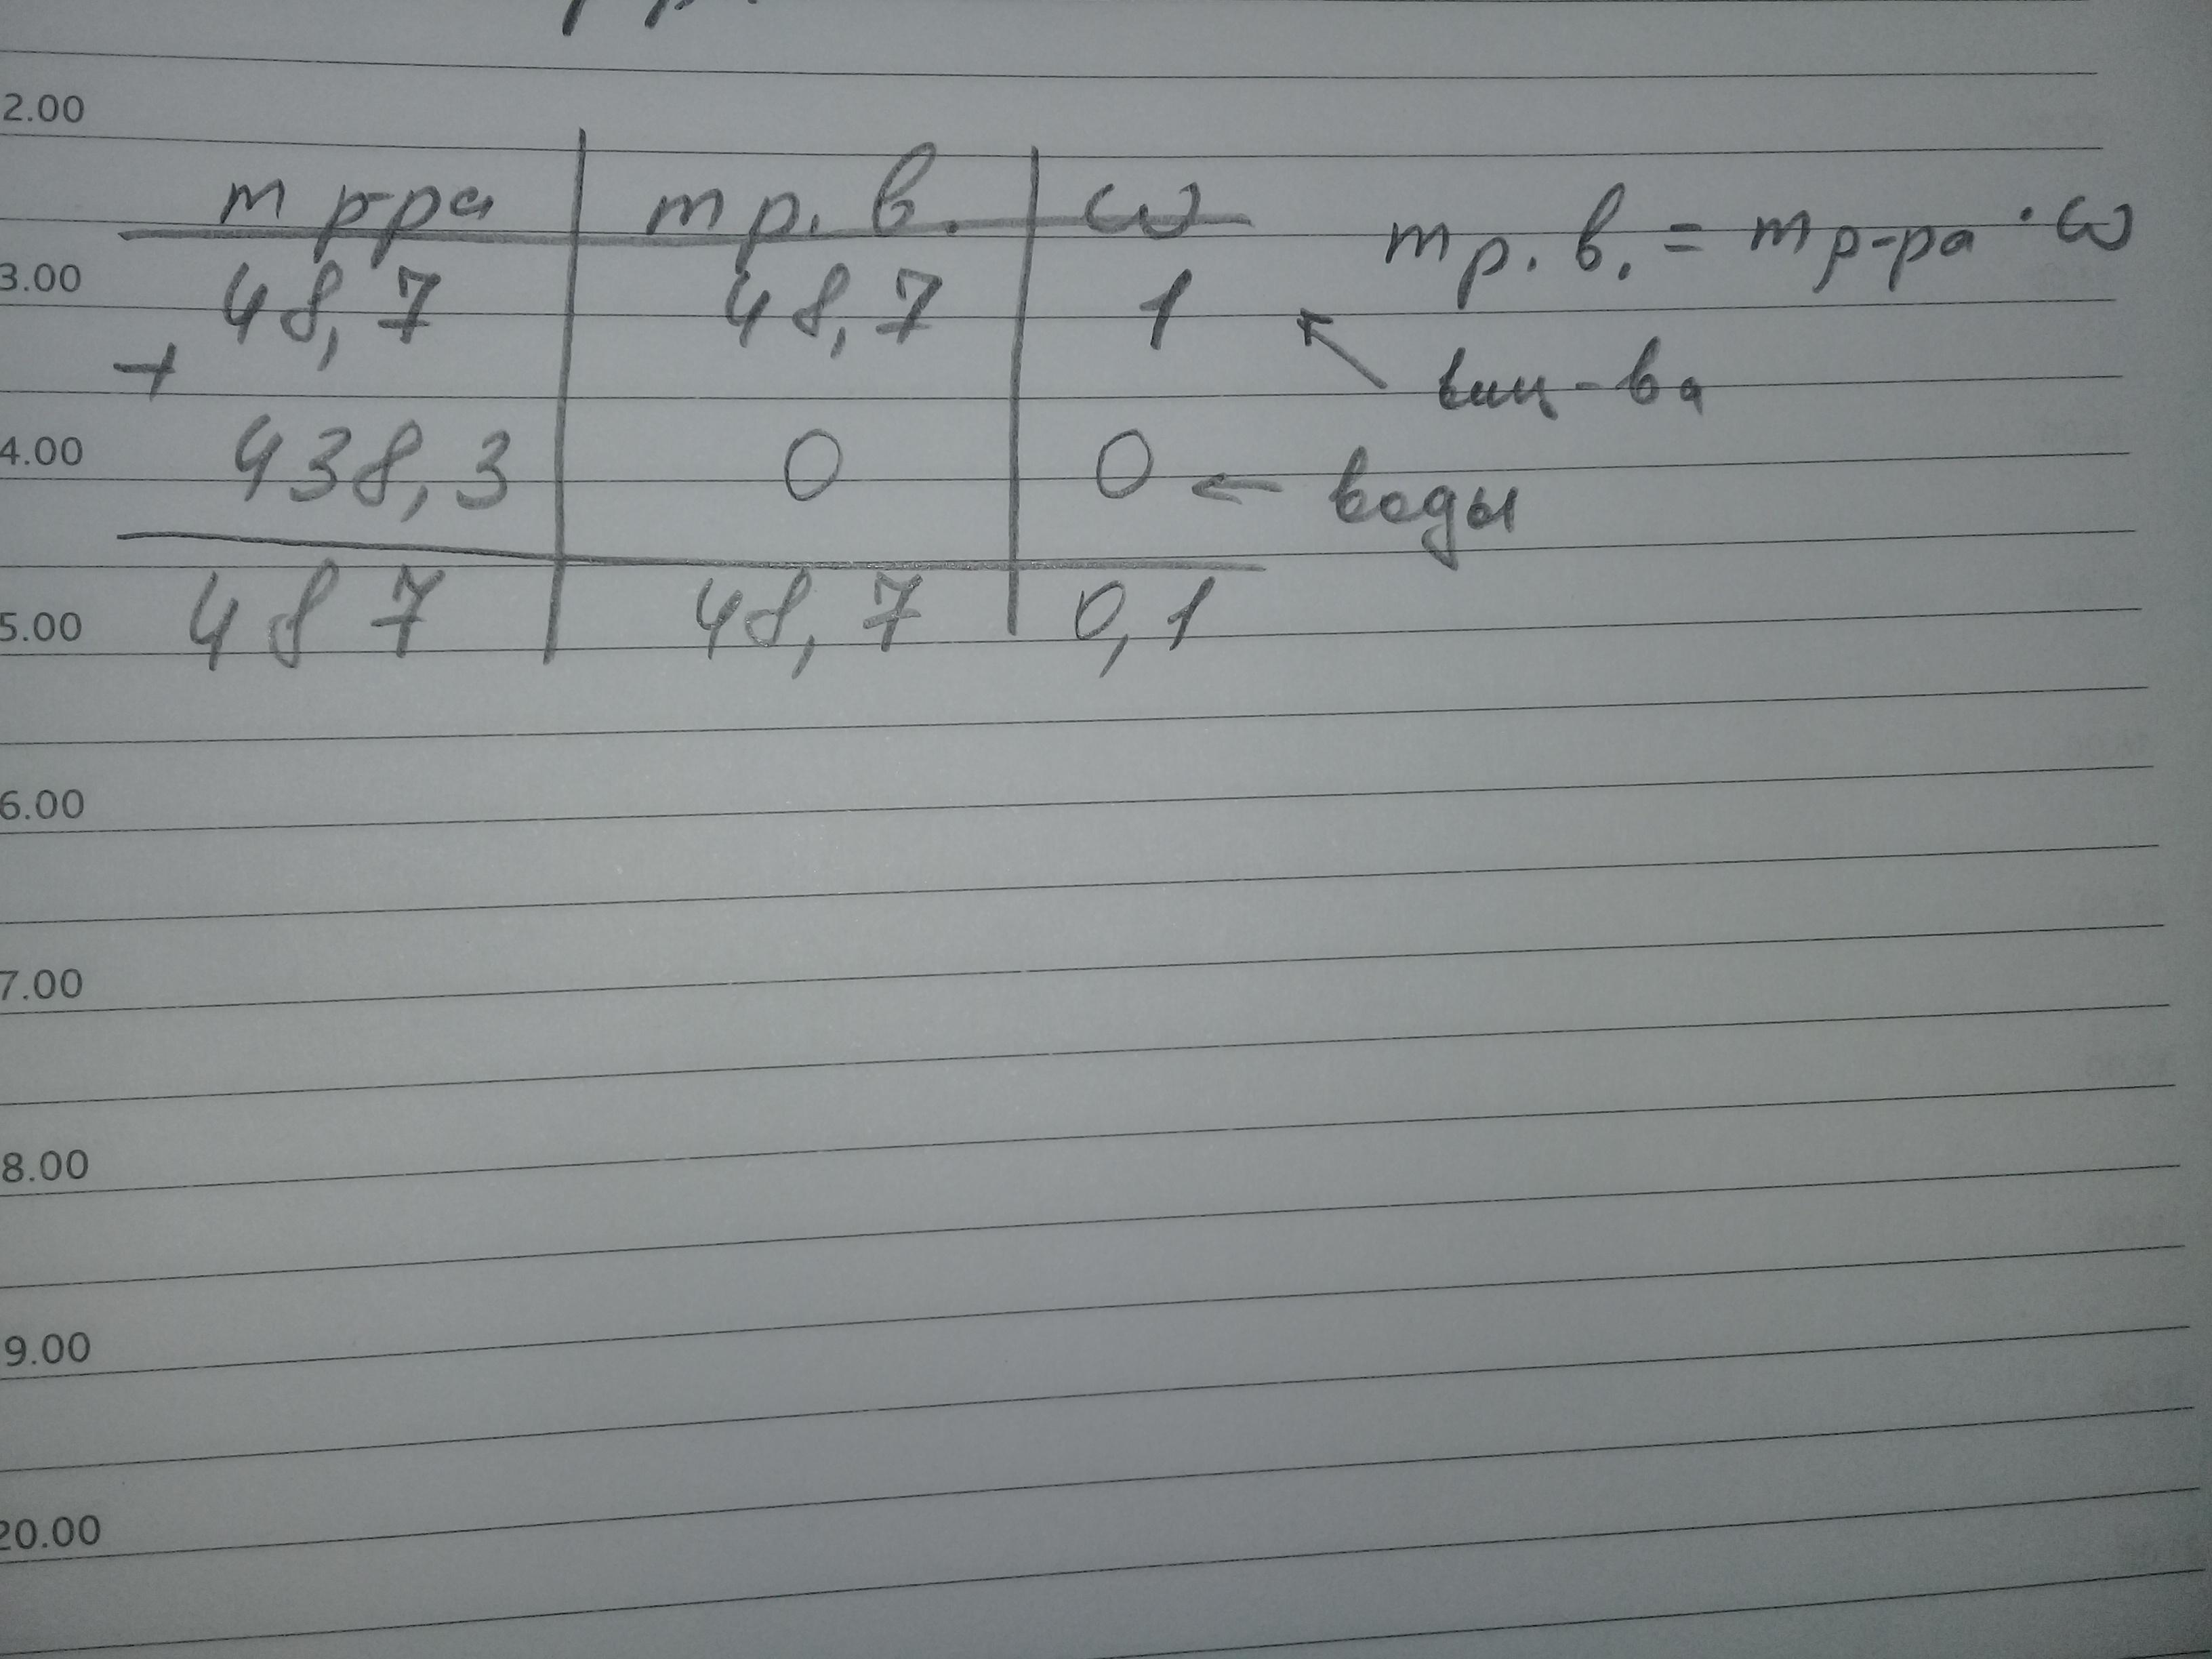 2.00
m р-ра | m р. в. | ω
m р. в. = m р-ра · ω
3.00
48,7 | 48,7 | 1
+
↖ вещ-ва
4.00
438,3 | 0 | 0 ← воды
5.00
487 | 48,7 | 0,1
6.00
7.00
8.00
9.00
20.00